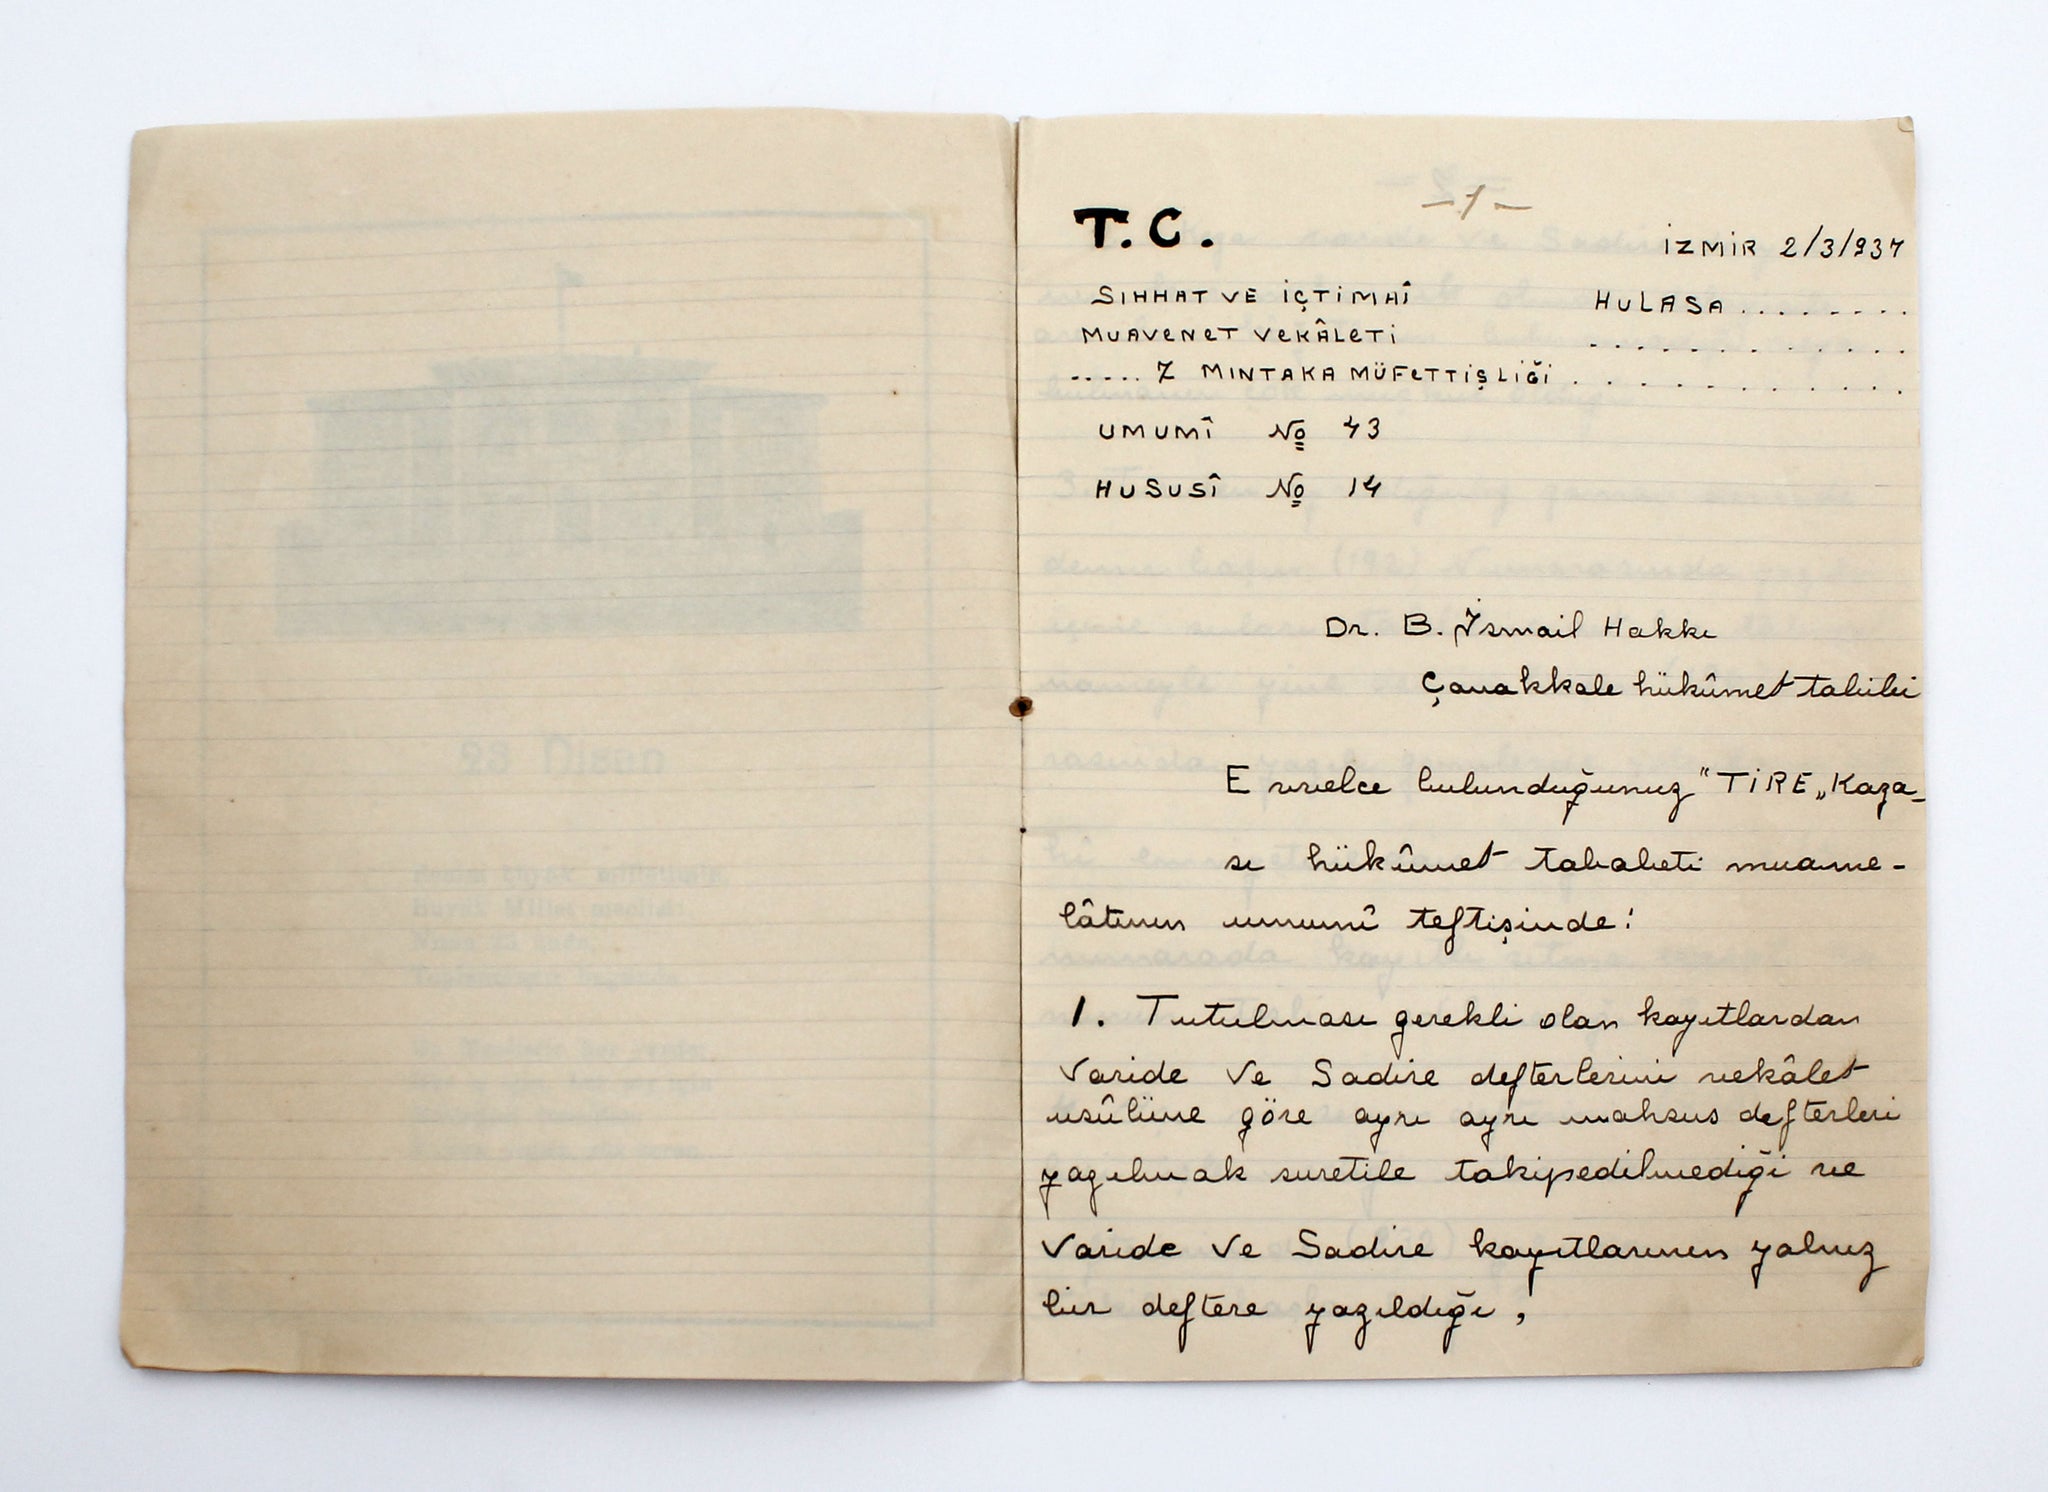 - 1 -
T.C.
İZMİR 2/3/937
SIHHAT VE İÇTİMAÎ
HULASA........
MUAVENET VEKÂLETİ
............
.....7 MINTAKA MÜFETTİŞLİĞİ
............
UMUMÎ No 43
HUSUSÎ No 14
Dr. B. İsmail Hakkı
Çanakkale hükûmet tabibi
Evvelce bulunduğunuz "TİRE„ Kaza-
sı hükûmet tababeti muame-
lâtının umumî teftişinde:
1. Tutulması gerekli olan kayıtlardan
Varide Ve Sadire defterlerini vekâlet
usûlüne göre ayrı ayrı mahsus defterleri
yazılmak suretile takipedilmediği ve
Varide Ve Sadire kayıtlarının yalnız
bir deftere yazıldığı,
23 Nisan